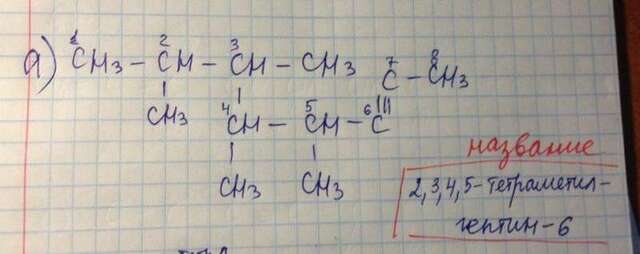 а) 1 2 3 7 8
CH3 – CH – CH – CH3 C – CH3
CH3 4 CH – 5 CH – 6 C
CH3 CH3
название
2,3,4,5-тетраметил-
гептин-6